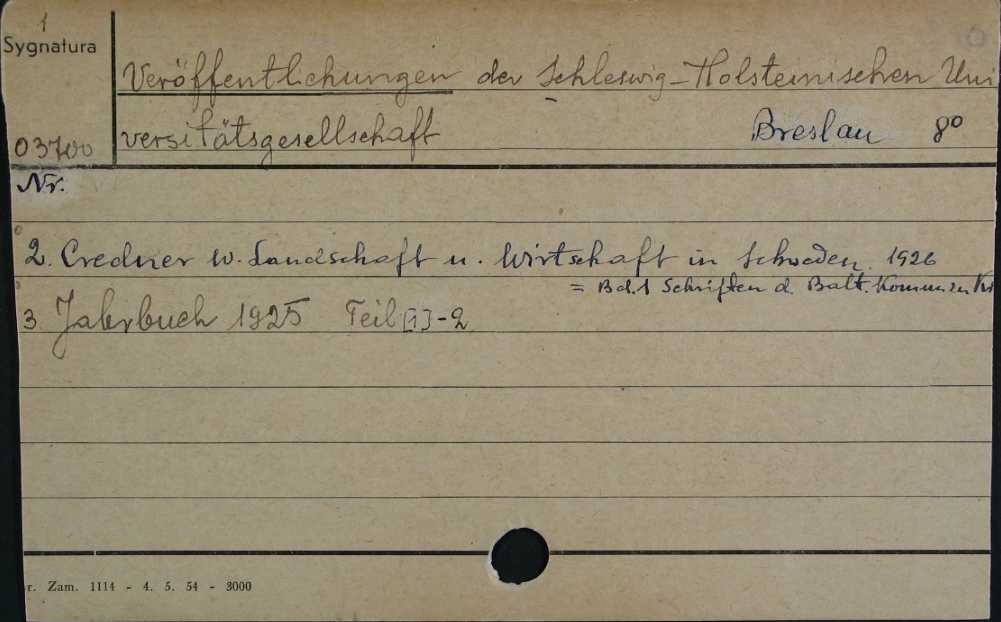 1
Sygnatura
Veröffentlichungen der Schleswig-Holsteinischen Uni
03700
versitätsgesellschaft Breslau 8°
Nr.
2. Credner W. Landschaft u. Wirtschaft in Schweden. 1926
= Bd. 1 Schriften d. Balt. Komm. zu
3 Jahrbuch 1925 Teil [1]-2
r. Zam. 1114 - 4. 5. 54 - 3000